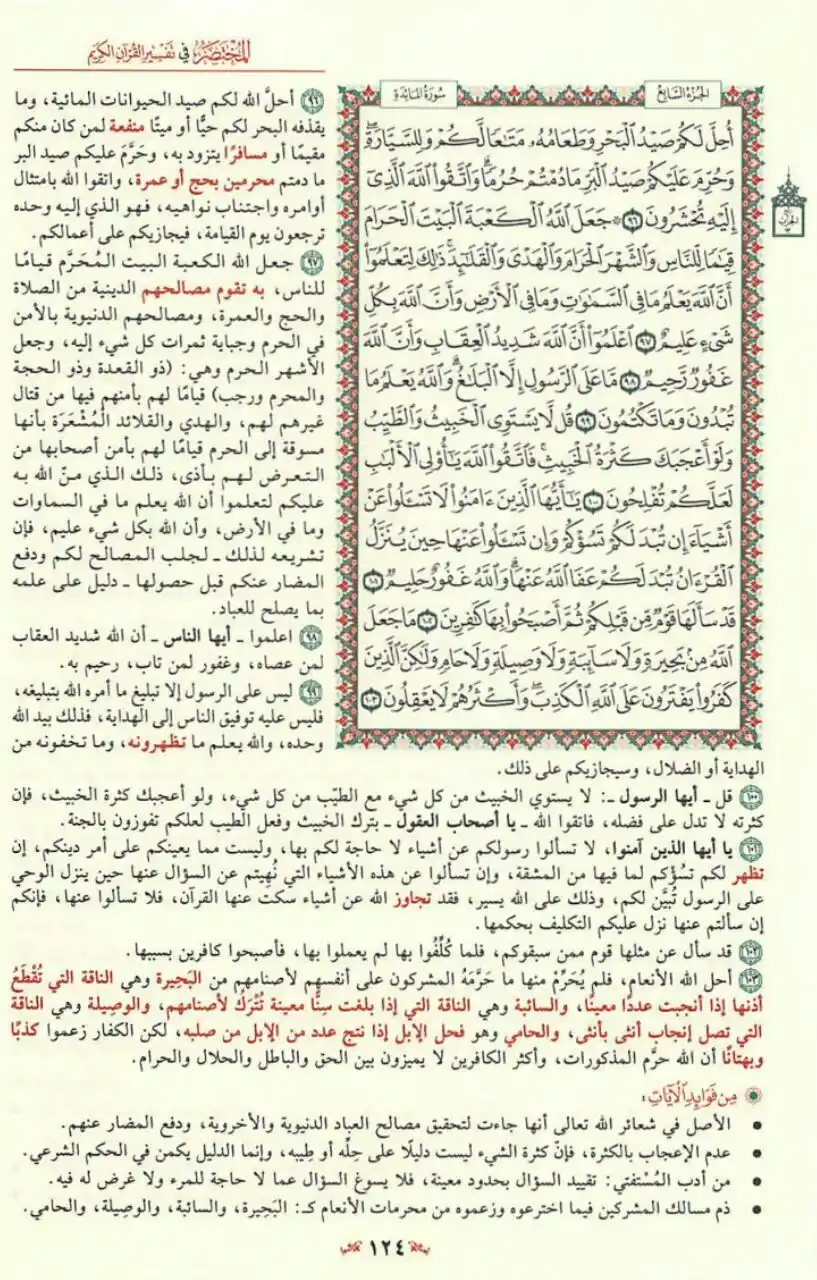 المختصر في تفسير القرآن الكريم
الجزء السابع
سورة المائدة
أُحِلَّ لَكُمْ صَيْدُ ٱلْبَحْرِ وَطَعَامُهُۥ مَتَٰعًا لَّكُمْ وَلِلسَّيَّارَةِۖ
وَحُرِّمَ عَلَيْكُمْ صَيْدُ ٱلْبَرِّ مَا دُمْتُمْ حُرُمًاۗ وَٱتَّقُوا۟ ٱللَّهَ ٱلَّذِىٓ
إِلَيْهِ تُحْشَرُونَ ٩٦ ۞ جَعَلَ ٱللَّهُ ٱلْكَعْبَةَ ٱلْبَيْتَ ٱلْحَرَامَ
قِيَٰمًا لِّلنَّاسِ وَٱلشَّهْرَ ٱلْحَرَامَ وَٱلْهَدْىَ وَٱلْقَلَٰٓئِدَۚ ذَٰلِكَ لِتَعْلَمُوٓا۟
أَنَّ ٱللَّهَ يَعْلَمُ مَا فِى ٱلسَّمَٰوَٰتِ وَمَا فِى ٱلْأَرْضِ وَأَنَّ ٱللَّهَ بِكُلِّ
شَىْءٍ عَلِيمٌ ٩٧ ٱعْلَمُوٓا۟ أَنَّ ٱللَّهَ شَدِيدُ ٱلْعِقَابِ وَأَنَّ ٱللَّهَ
غَفُورٌ رَّحِيمٌ ٩٨ مَّا عَلَى ٱلرَّسُولِ إِلَّا ٱلْبَلَٰغُۗ وَٱللَّهُ يَعْلَمُ مَا
تُبْدُونَ وَمَا تَكْتُمُونَ ٩٩ قُل لَّا يَسْتَوِى ٱلْخَبِيثُ وَٱلطَّيِّبُ
وَلَوْ أَعْجَبَكَ كَثْرَةُ ٱلْخَبِيثِۚ فَٱتَّقُوا۟ ٱللَّهَ يَٰٓأُو۟لِى ٱلْأَلْبَٰبِ
لَعَلَّكُمْ تُفْلِحُونَ ١٠٠ يَٰٓأَيُّهَا ٱلَّذِينَ ءَامَنُوا۟ لَا تَسْـَٔلُوا۟ عَنْ
أَشْيَآءَ إِن تُبْدَ لَكُمْ تَسُؤْكُمْ وَإِن تَسْـَٔلُوا۟ عَنْهَا حِينَ يُنَزَّلُ
ٱلْقُرْءَانُ تُبْدَ لَكُمْ عَفَا ٱللَّهُ عَنْهَاۗ وَٱللَّهُ غَفُورٌ حَلِيمٌ ١٠١
قَدْ سَأَلَهَا قَوْمٌ مِّن قَبْلِكُمْ ثُمَّ أَصْبَحُوا۟ بِهَا كَٰفِرِينَ ١٠٢ مَا جَعَلَ
ٱللَّهُ مِنۢ بَحِيرَةٍ وَلَا سَآئِبَةٍ وَلَا وَصِيلَةٍ وَلَا حَامٍۙ وَلَٰكِنَّ ٱلَّذِينَ
كَفَرُوا۟ يَفْتَرُونَ عَلَى ٱللَّهِ ٱلْكَذِبَۖ وَأَكْثَرُهُمْ لَا يَعْقِلُونَ ١٠٣
٩٦ أحلَّ الله لكم صيد الحيوانات المائية، وما
يقذفه البحر لكم حيًّا أو ميتًا منفعة لمن كان منكم
مقيمًا أو مسافرًا يتزود به، وحَرَّمَ عليكم صيد البر
ما دمتم محرمين بحج أو عمرة، واتقوا الله بامتثال
أوامره واجتناب نواهيه، فهو الذي إليه وحده
ترجعون يوم القيامة، فيجازيكم على أعمالكم.
٩٧ جعل الله الكعبة البيت المُحَرَّم قيامًا
للناس، به تقوم مصالحهم الدينية من الصلاة
والحج والعمرة، ومصالحهم الدنيوية بالأمن
في الحرم وجباية ثمرات كل شيء إليه، وجعل
الأشهر الحرم وهي: (ذو القعدة وذو الحجة
والمحرم ورجب) قيامًا لهم بأمنهم فيها من قتال
غيرهم لهم، والهدي والقلائد المُشْعَرَة بأنها
مسوقة إلى الحرم قيامًا لهم بأمن أصحابها من
التعرض لهم بأذى، ذلك الذي منّ الله به
عليكم لتعلموا أن الله يعلم ما في السماوات
وما في الأرض، وأن الله بكل شيء عليم، فإن
تشريعه لذلك ـ لجلب المصالح لكم ودفع
المضار عنكم قبل حصولها ـ دليل على علمه
بما يصلح للعباد.
٩٨ اعلموا ـ أيها الناس ـ أن الله شديد العقاب
لمن عصاه، وغفور لمن تاب، رحيم به.
٩٩ ليس على الرسول إلا تبليغ ما أمره الله بتبليغه،
فليس عليه توفيق الناس إلى الهداية، فذلك بيد الله
وحده، والله يعلم ما تظهرونه، وما تخفونه من
الهداية أو الضلال، وسيجازيكم على ذلك.
١٠٠ قل ـ أيها الرسول ـ: لا يستوي الخبيث من كل شيء مع الطيّب من كل شيء، ولو أعجبك كثرة الخبيث، فإن
كثرته لا تدل على فضله، فاتقوا الله ـ يا أصحاب العقول ـ بترك الخبيث وفعل الطيب لعلكم تفوزون بالجنة.
١٠١ يا أيها الذين آمنوا، لا تسألوا رسولكم عن أشياء لا حاجة لكم بها، وليست مما يعينكم على أمر دينكم، إن
تظهر لكم تسُؤكم لما فيها من المشقة، وإن تسألوا عن هذه الأشياء التي نُهِيتم عن السؤال عنها حين ينزل الوحي
على الرسول تُبيَّن لكم، وذلك على الله يسير، فقد تجاوز الله عن أشياء سكت عنها القرآن، فلا تسألوا عنها، فإنكم
إن سألتم عنها نزل عليكم التكليف بحكمها.
١٠٢ قد سأل عن مثلها قوم ممن سبقوكم، فلما كُلِّفُوا بها لم يعملوا بها، فأصبحوا كافرين بسببها.
١٠٣ أحل الله الأنعام، فلم يُحَرِّمْ منها ما حَرَّمَهُ المشركون على أنفسهم لأصنامهم من البَحِيرة وهي الناقة التي تُقْطَعُ
أذنها إذا أنجبت عددًا معينًا، والسائبة وهي الناقة التي إذا بلغت سِنًّا معينة تُتْرَكُ لأصنامهم، والوصِيلة وهي الناقة
التي تصل إنجاب أنثى بأنثى، والحامي وهو فحل الإبل إذا نتج عدد من الإبل من صلبه، لكن الكفار زعموا كذبًا
وبهتانًا أن الله حرَّم المذكورات، وأكثر الكافرين لا يميزون بين الحق والباطل والحلال والحرام.
من فوائد الآيات:
• الأصل في شعائر الله تعالى أنها جاءت لتحقيق مصالح العباد الدنيوية والأخروية، ودفع المضار عنهم.
• عدم الإعجاب بالكثرة، فإنّ كثرة الشيء ليست دليلًا على حِلِّه أو طِيبه، وإنما الدليل يكمن في الحكم الشرعي.
• من أدب المُسْتفتي: تقييد السؤال بحدود معينة، فلا يسوغ السؤال عما لا حاجة للمرء ولا غرض له فيه.
• ذم مسالك المشركين فيما اخترعوه وزعموه من محرمات الأنعام كـ: البَحِيرة، والسائبة، والوصِيلة، والحامي.
١٢٤